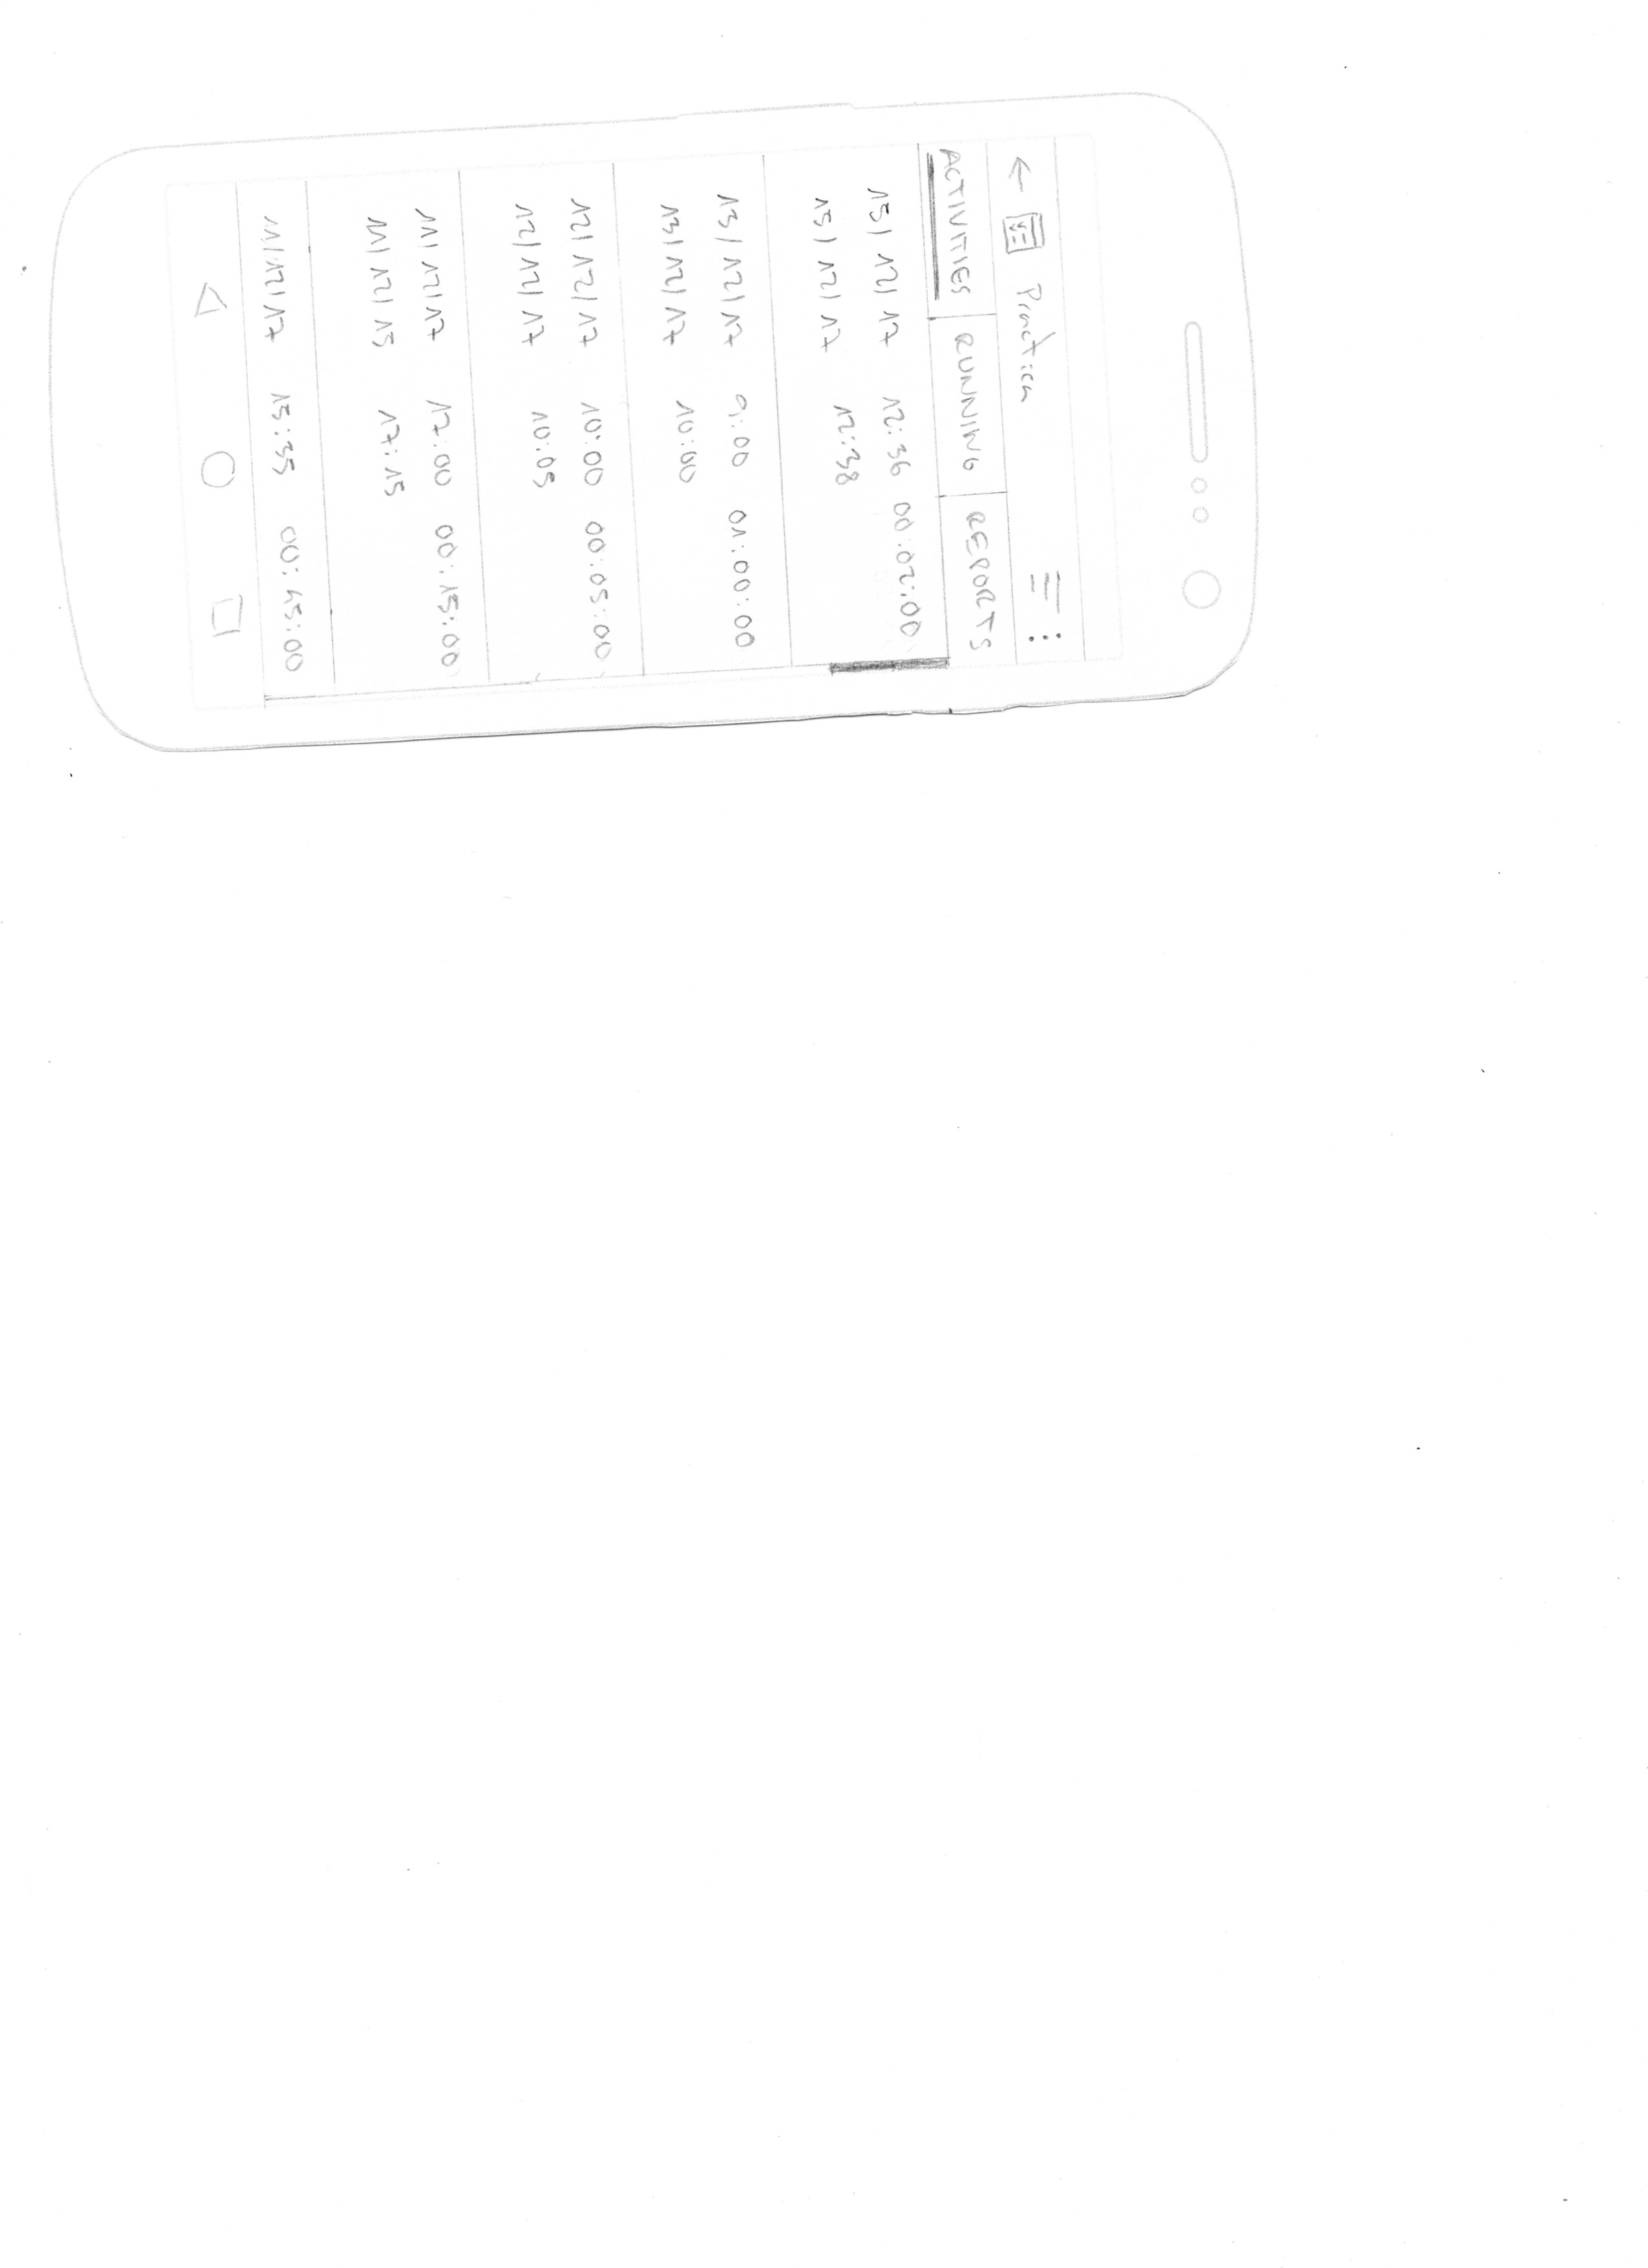 Practica
ACTIVITIES RUNNING REPORTS
15/12/17 12:36 00:02:00
15/12/17 12:38
13/12/17 9:00 01:00:00
13/12/17 10:00
12/12/17 10:00 00:05:00
12/12/17 10:05
11/12/17 17:00 00:15:00
11/12/15 17:15
11/12/17 15:35 00:45:00